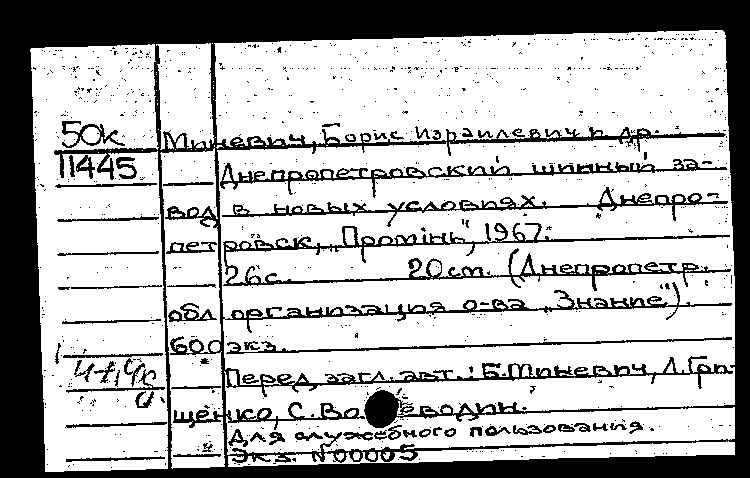 50к
11445
Миневич, Борис Израилевич и др.
Днепропетровский шинный за-
вод в новых условиях. Днепро-
петровск, „Промiнь“, 1967.
26с. 20см. (Днепропетр.
обл. организация о-ва „Знание“).
600 экз.
Перед загл. авт.: Б.Миневич, Л.Гри-
щенко, С.Во еводин.
Для служебного пользования.
Экз. №00005